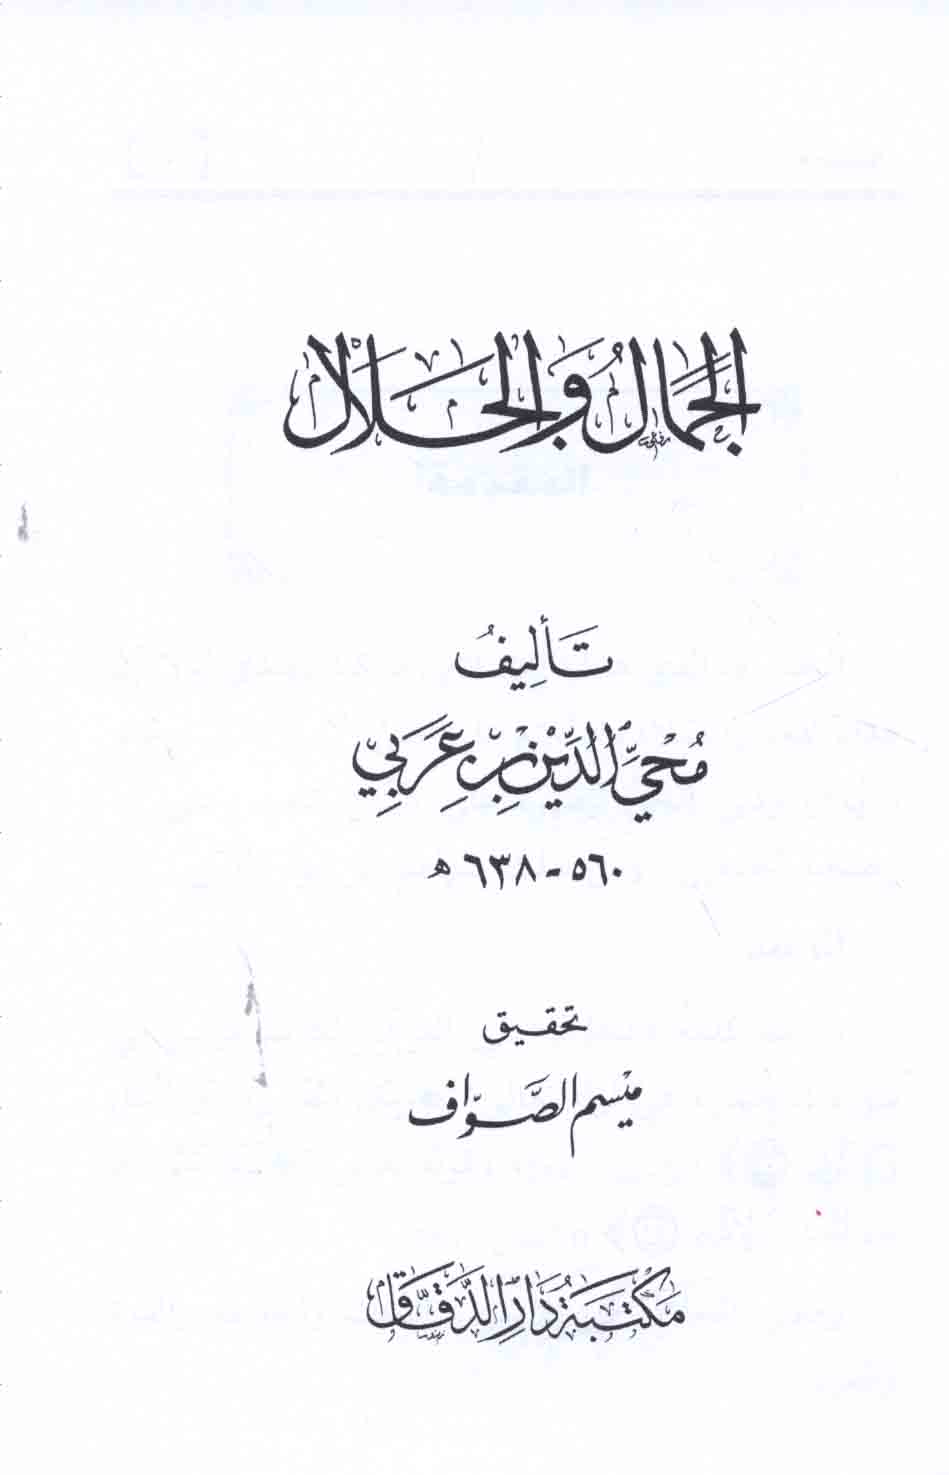 الجمال والجلال
تأليف
محيي الدين بن عربي
٥٦٠ - ٦٣٨ هـ
تحقيق
ميسم الصواف
مكتبة دار الدقاق